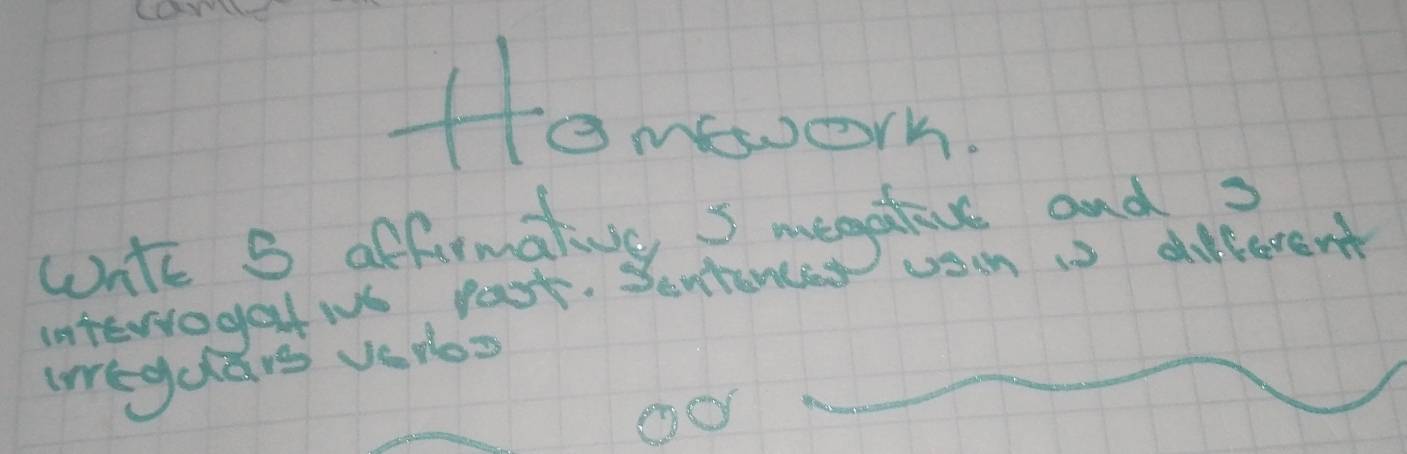 Homework.
Write 5 affirmative, 5 negative and 5
interrogative past. Sentences usin 15 different
irregulars verbs